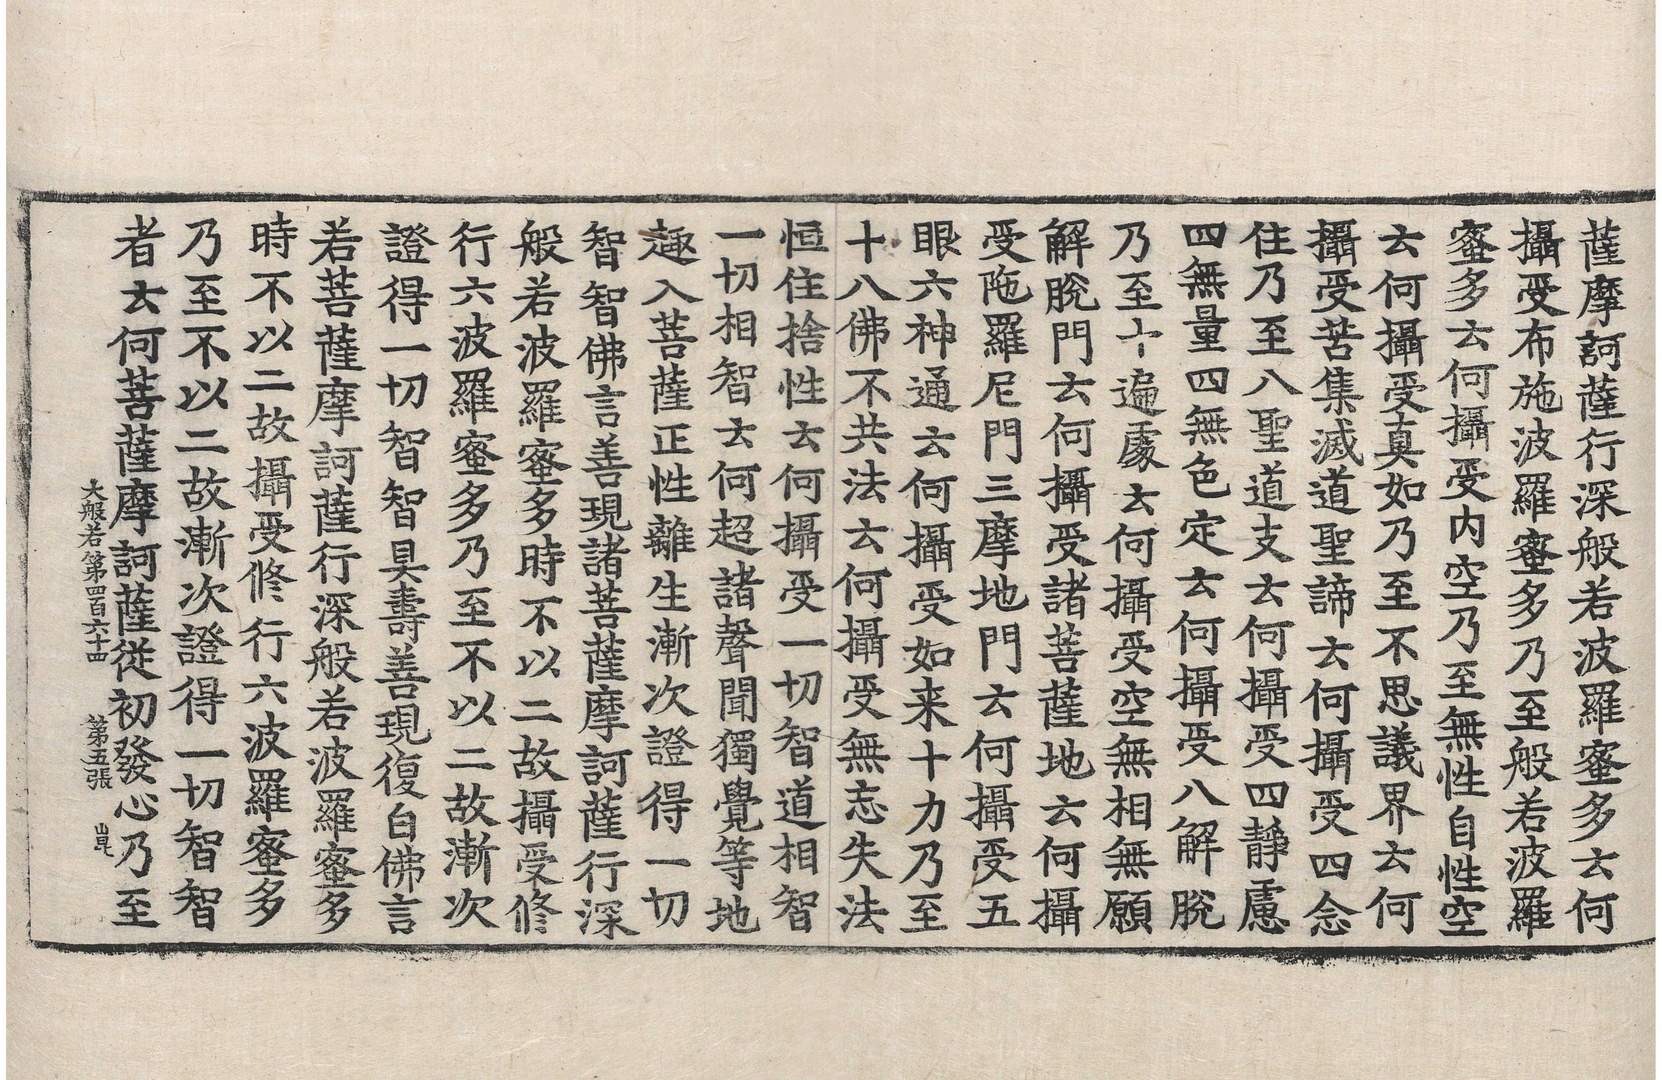 薩摩訶薩行深般若波羅蜜多云何
攝受布施波羅蜜多乃至般若波羅
蜜多云何攝受内空乃至無性自性空
云何攝受真如乃至不思議界云何
攝受苦集滅道聖諦云何攝受四念
住乃至八聖道支云何攝受四靜慮
四無量四無色定云何攝受八解脫
乃至十遍處云何攝受空無相無願
解脫門云何攝受諸菩薩地云何攝
受陁羅尼門三摩地門云何攝受五
眼六神通云何攝受如来十力乃至
十八佛不共法云何攝受無忘失法
恒住捨性云何攝受一切智道相智
一切相智云何超諸聲聞獨覺等地
趣入菩薩正性離生漸次證得一切
智智佛言善現諸菩薩摩訶薩行深
般若波羅蜜多時不以二故攝受修
行六波羅蜜多乃至不以二故漸次
證得一切智智具壽善現復白佛言
若菩薩摩訶薩行深般若波羅蜜多
時不以二故攝受修行六波羅蜜多
乃至不以二故漸次證得一切智智
者云何菩薩摩訶薩從初發心乃至
大般若第四百六十四 第五張 崑